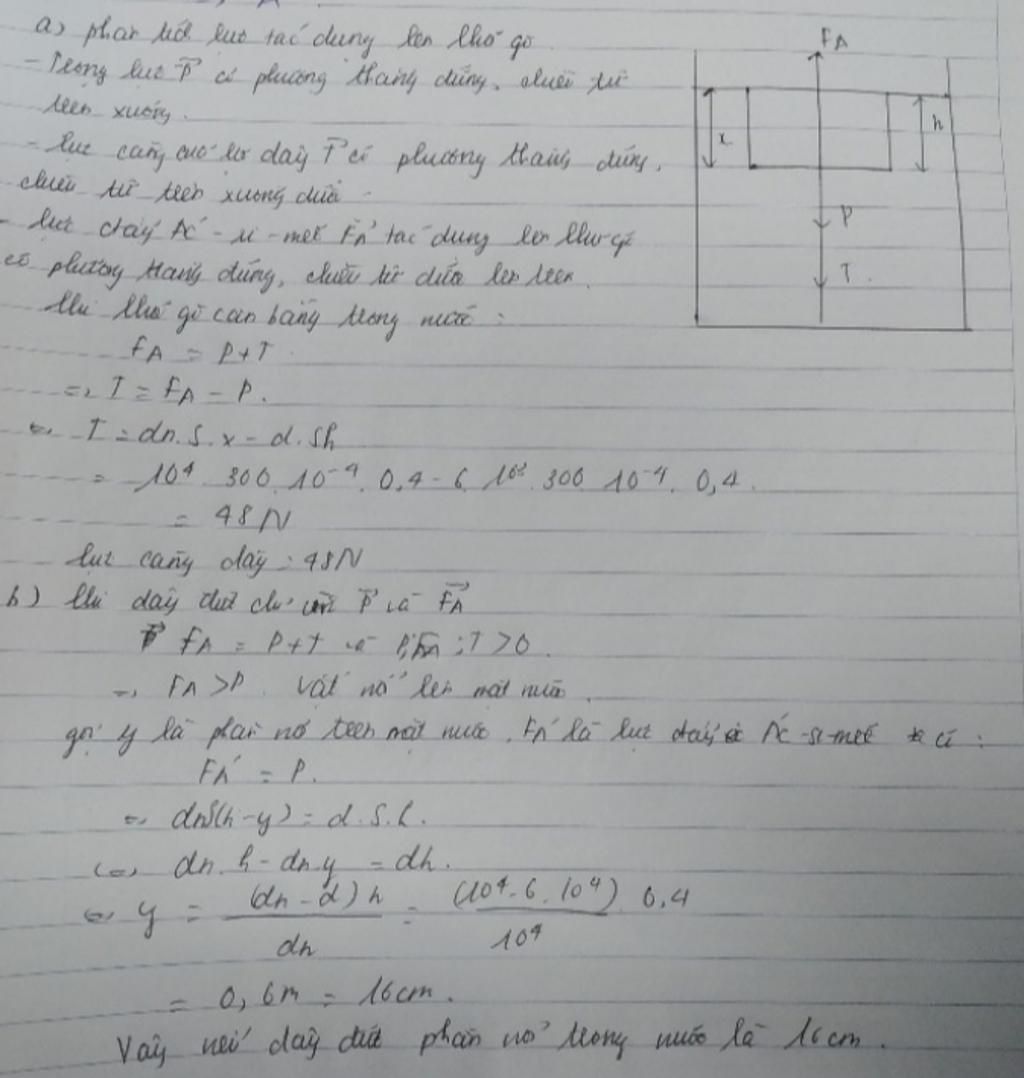 a) phân tích lực tác dụng lên khố gỗ
- Trọng lực P có phương thẳng đứng, chiều từ
trên xuống.
- lực căng của sợi dây T có phương thẳng đứng,
chiều từ trên xuống dưới
- lực đẩy Ác-si-mét FA tác dụng lên khối gỗ
có phương thẳng đứng, chiều từ dưới lên trên.
khi khố gỗ cân bằng trong nước:
FA = P+T
=> T = FA - P.
<=> T = dn.S.x - d.Sh
= 10⁴ 300 10⁻⁴. 0,4 - 6 10³ 300 10⁻⁴. 0,4.
= 48N
lực căng dây: 48N
b) khi dây đứt chỉ còn P và FA
FA = P+T và P;FA;T>0.
=> FA>P. Vật nổ lên mặt nước.
gọi y là phần nổ trên mặt nước. FA' là lực đẩy Ác-si-mét có:
FA' = P.
<=> dnS(h-y) = d.S.h.
<=> dn.h - dn.y = dh.
<=> y = (dn-d)h / dn = (10⁴-6.10⁴) 0,4 / 10⁴
= 0,6m = 16cm.
Vậy nếu dây đứt phần nổ trong nước là 16cm.
FA
x
h
P
T.